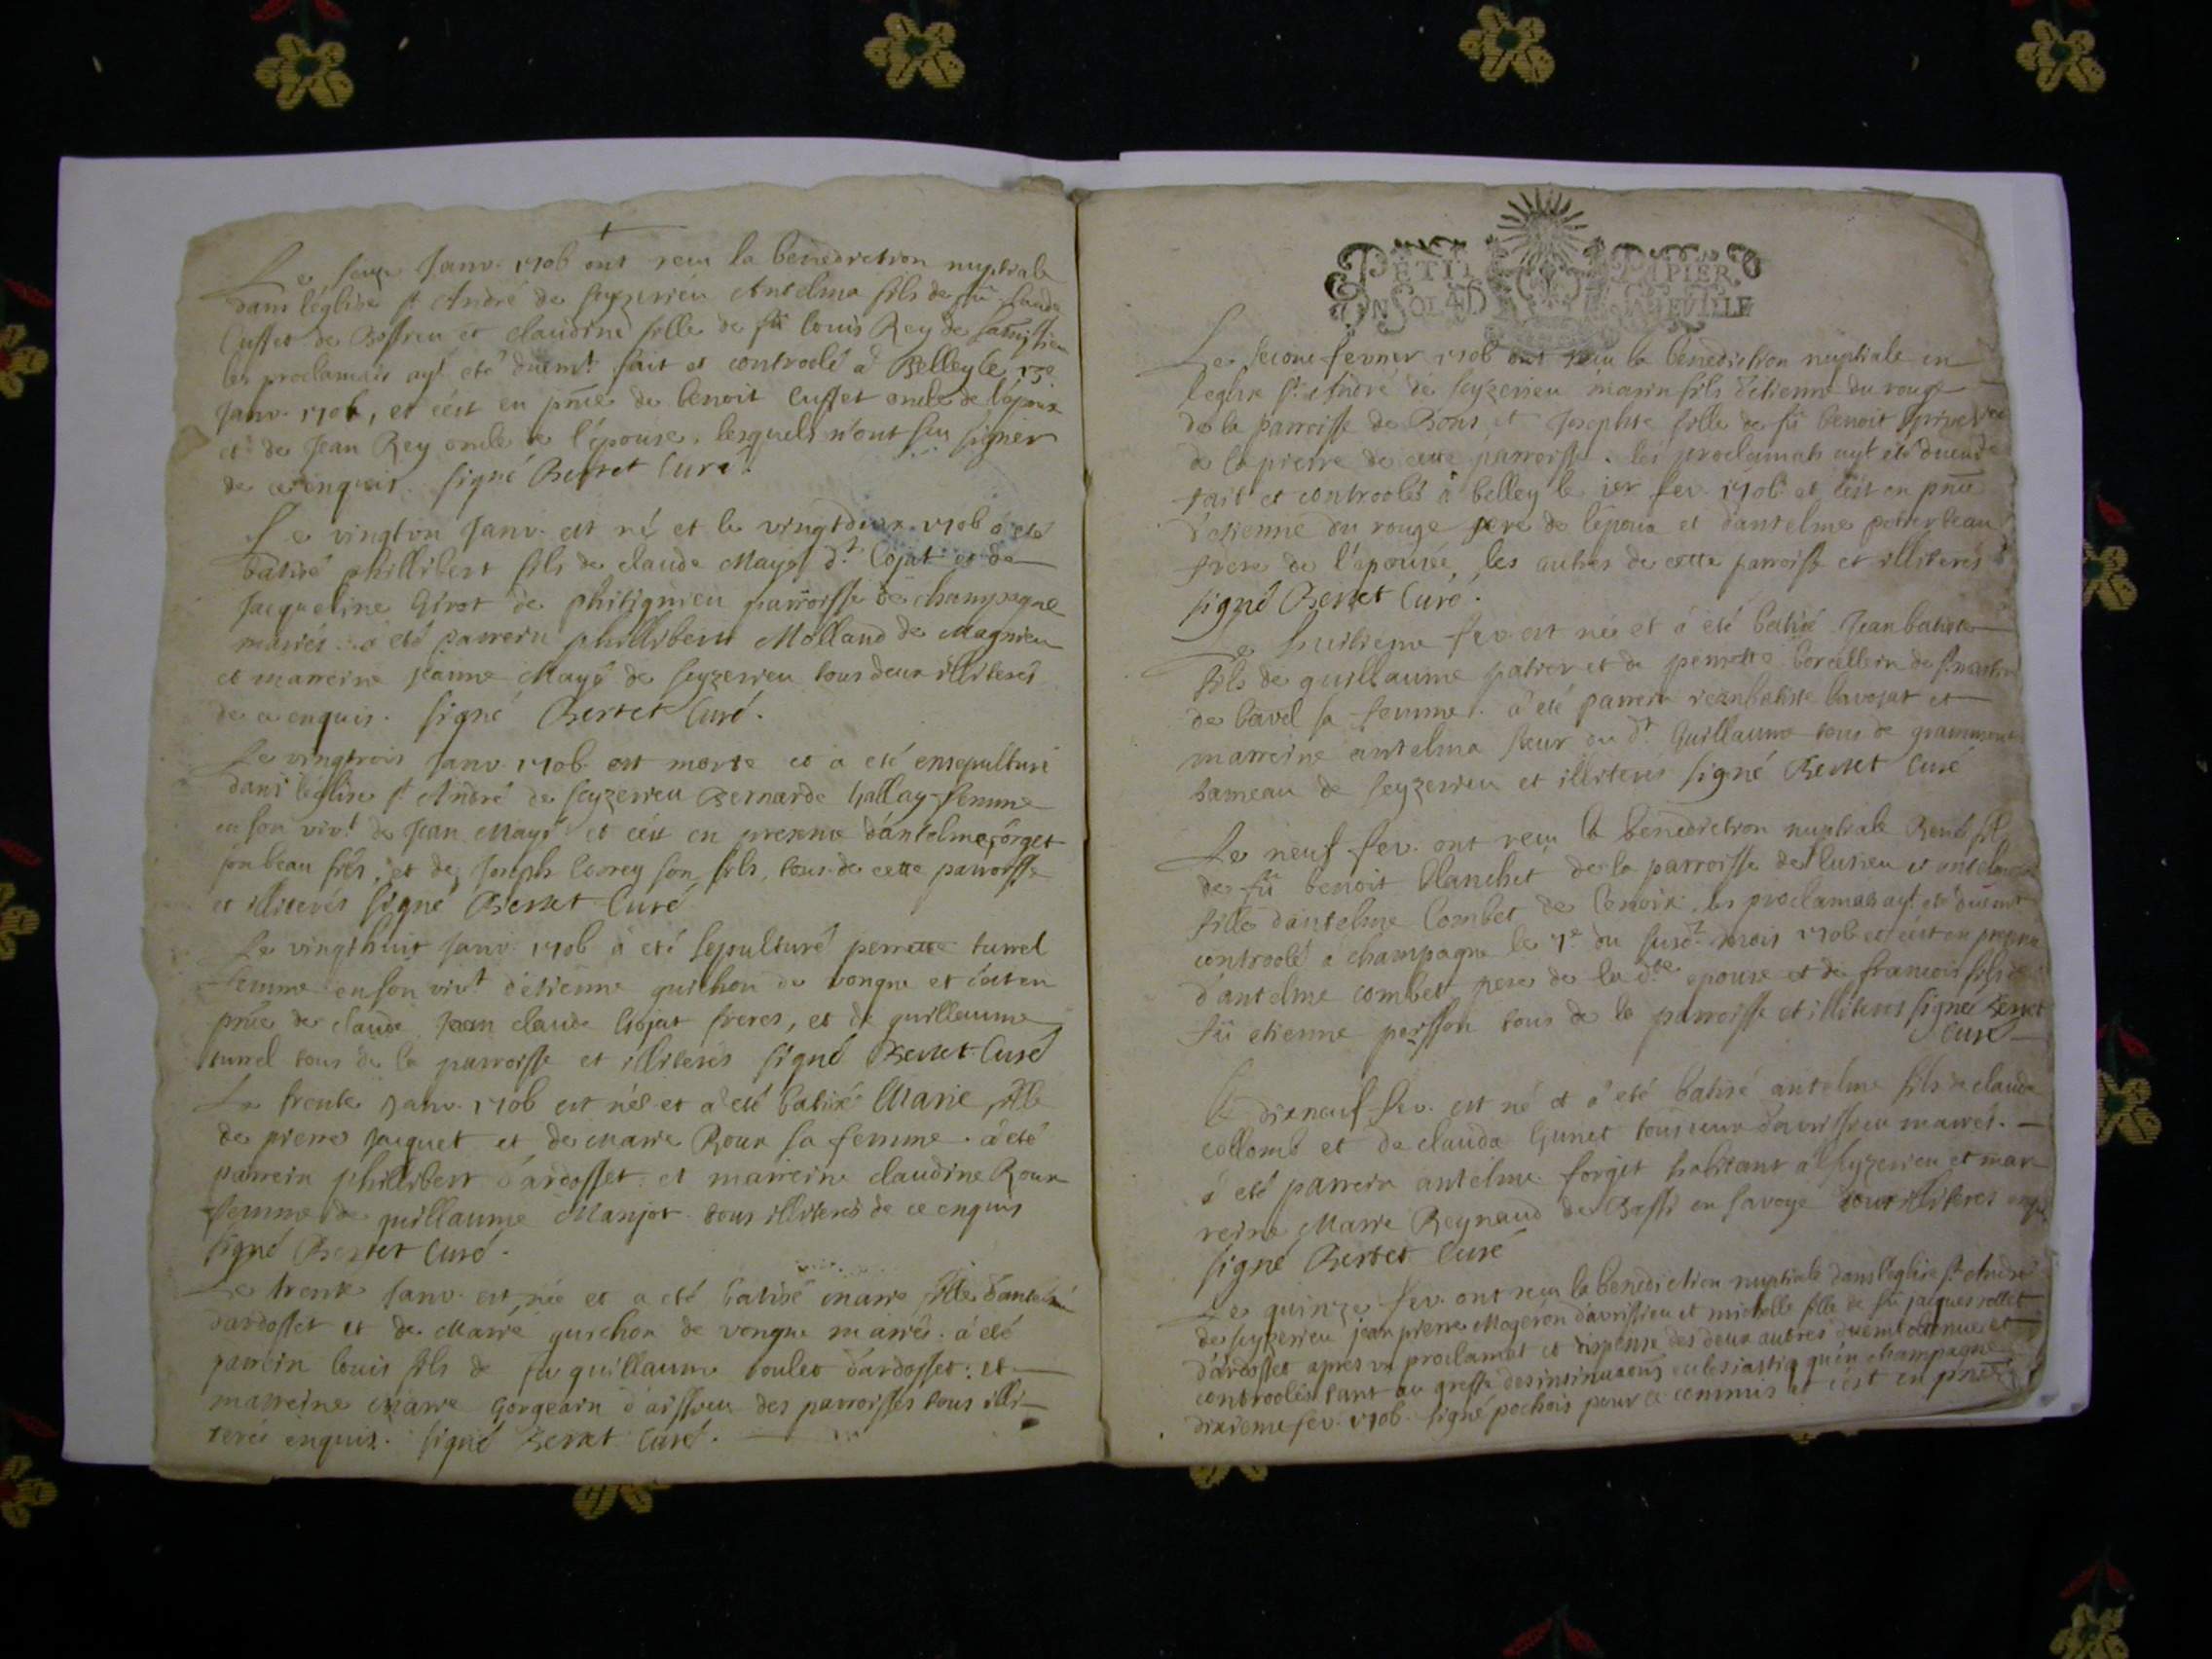 Le Janv. 1706 ont receu la benediction nuptiale
dans l'église St André de seyzerieu Antelme fils de fû
Cusset de Boissieu et claudine fille de fû louis Rey de
les proclamats ayt eté duemt fait et controolé à Belley le 13e
Janv. 1706, et c'est en pnce de benoit Cusset oncle de l'époux
et de Jean Rey oncle de l'épouse, lesquels n'ont sçu signer
de ce enquis. signé Bertet Curé.
Le vingtun Janv. est né et le vingtdeux 1706 a eté
batisé phillibert fils de claude Mayé dt Cojat et de
Jacqueline Girot de philignieu parroisse de champagne
mariés. a eté parrein phillibert Molland de Magnieu
et marreine jeanne Mayé de seyzerieu tous deux illiterés
de ce enquis. signé Bertet Curé.
Le vingtrois Janv. 1706 est morte et a eté ensepulturé
dans l'église St André de seyzerieu Bernarde femme
en son vivt de Jean Mayé et c'est en presence d'antelme forget
son beau frés, et de Joseph son fils, tous de cette parroisse
et illiterés signé Bertet Curé
Le vingthuit Janv. 1706 à eté sepulturé perrette turrel
femme en son vivt d'étienne guichon de vongne et c'est en
pnce de claude Jean claude Gojat freres, et de guillaume
turrel tous de la parroisse et illiterés signé Bertet Curé
Le trente Janv. 1706 est née et a eté batisé Marie fille
de pierre jacquet et de marie Roux sa femme. a eté
parrein phillibert d'ardosset et marreine claudine Roux
femme de guillaume Manjot tous illiterés de ce enquis
signé Bertet Curé.
Le trente Janv. est née et a eté batisé marie fille d'antelme
d'ardosset et de Marie guichon de vongne mariés. a eté
parrein louis fils de fu guillaume d'ardosset: et
marreine marie Gorgeain d'aissieu des parroisses tous illi-
terés enquis. signé Bertet Curé.
PETIT PAPIER
UN SOL 4 D LA FEUILLE
Le second fevrier 1706 ont receu la benediction nuptiale en
leglise St André de seyzerieu marin fils d'etienne du rouge
de la parroisse de Bons et Josephte fille de fû benoit
de lapierre de cette parroisse. les proclamats ayt eté
fait et controolés à belley le 1er fev. 1706 et c'est en pnce
d'etienne du rouge pere de l'epoux et d'antelme beau
frere de l'epousée, les autres de cette parroisse et illiterés
signé Bertet Curé.
Le huitieme fev. est né et à eté batisé Jean batiste
fils de guillaume patier et de perrette de St martin
de bavel sa femme. a eté parrein jeanbatiste Cavojat et
marreine antelma soeur du dt Guillaume tous de grammont
hameau de seyzerieu et illiterés signé Bertet Curé
Le neuf fev. ont receu la benediction nuptiale René fils
de fû benoit blanchet de la parroisse de et
fille d'antelme Combet de les proclamats ayt eté duemt
controolé a champagne le 7e du susdt mois 1706 et c'est en
d'antelme combet pere de la dte epouse et de francois fils de
fû etienne poisson tous de la parroisse et illiterés signé Bertet
Curé
Le dixneuf fev. est né et a eté batisé antelme fils de claude
collomb et de claude Gunet tous deux d'avrissieu mariés.
a eté parrein antelme forget habitant à seyzerieu et mar-
reine Marie Reynaud de en savoye tous illiterés
signé Bertet Curé
Le quinze fev. ont receu la benediction nuptiale dans l'église St André
de seyzerieu jean pierre Mageron d'avrissieu et michelle fille de fû jacques
d'ardosset apres un proclamat et dispense des deux autres duemt obtenue et
controolés tant au greffe des insinuaons eclesiastiq qu'en champagne
dixieme fev. 1706 signé pochois pour ce commis et c'est en pnce